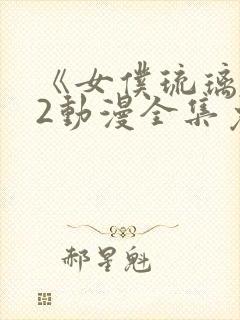 《女僕琉璃
2動漫全集
郝星魁